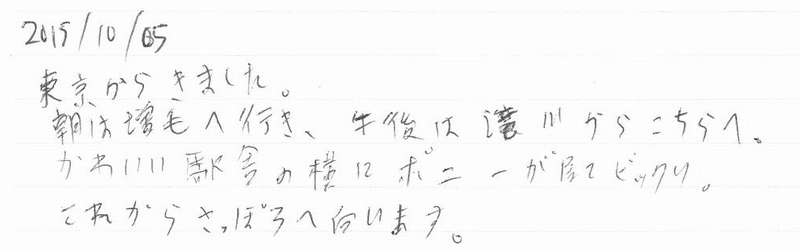 2015/10/05
東京からきました。
朝は増毛へ行き、午後は滝川からこちらへ。
かわいい駅舎の横にポニーが居てビックリ。
これからさっぽろへ向います。